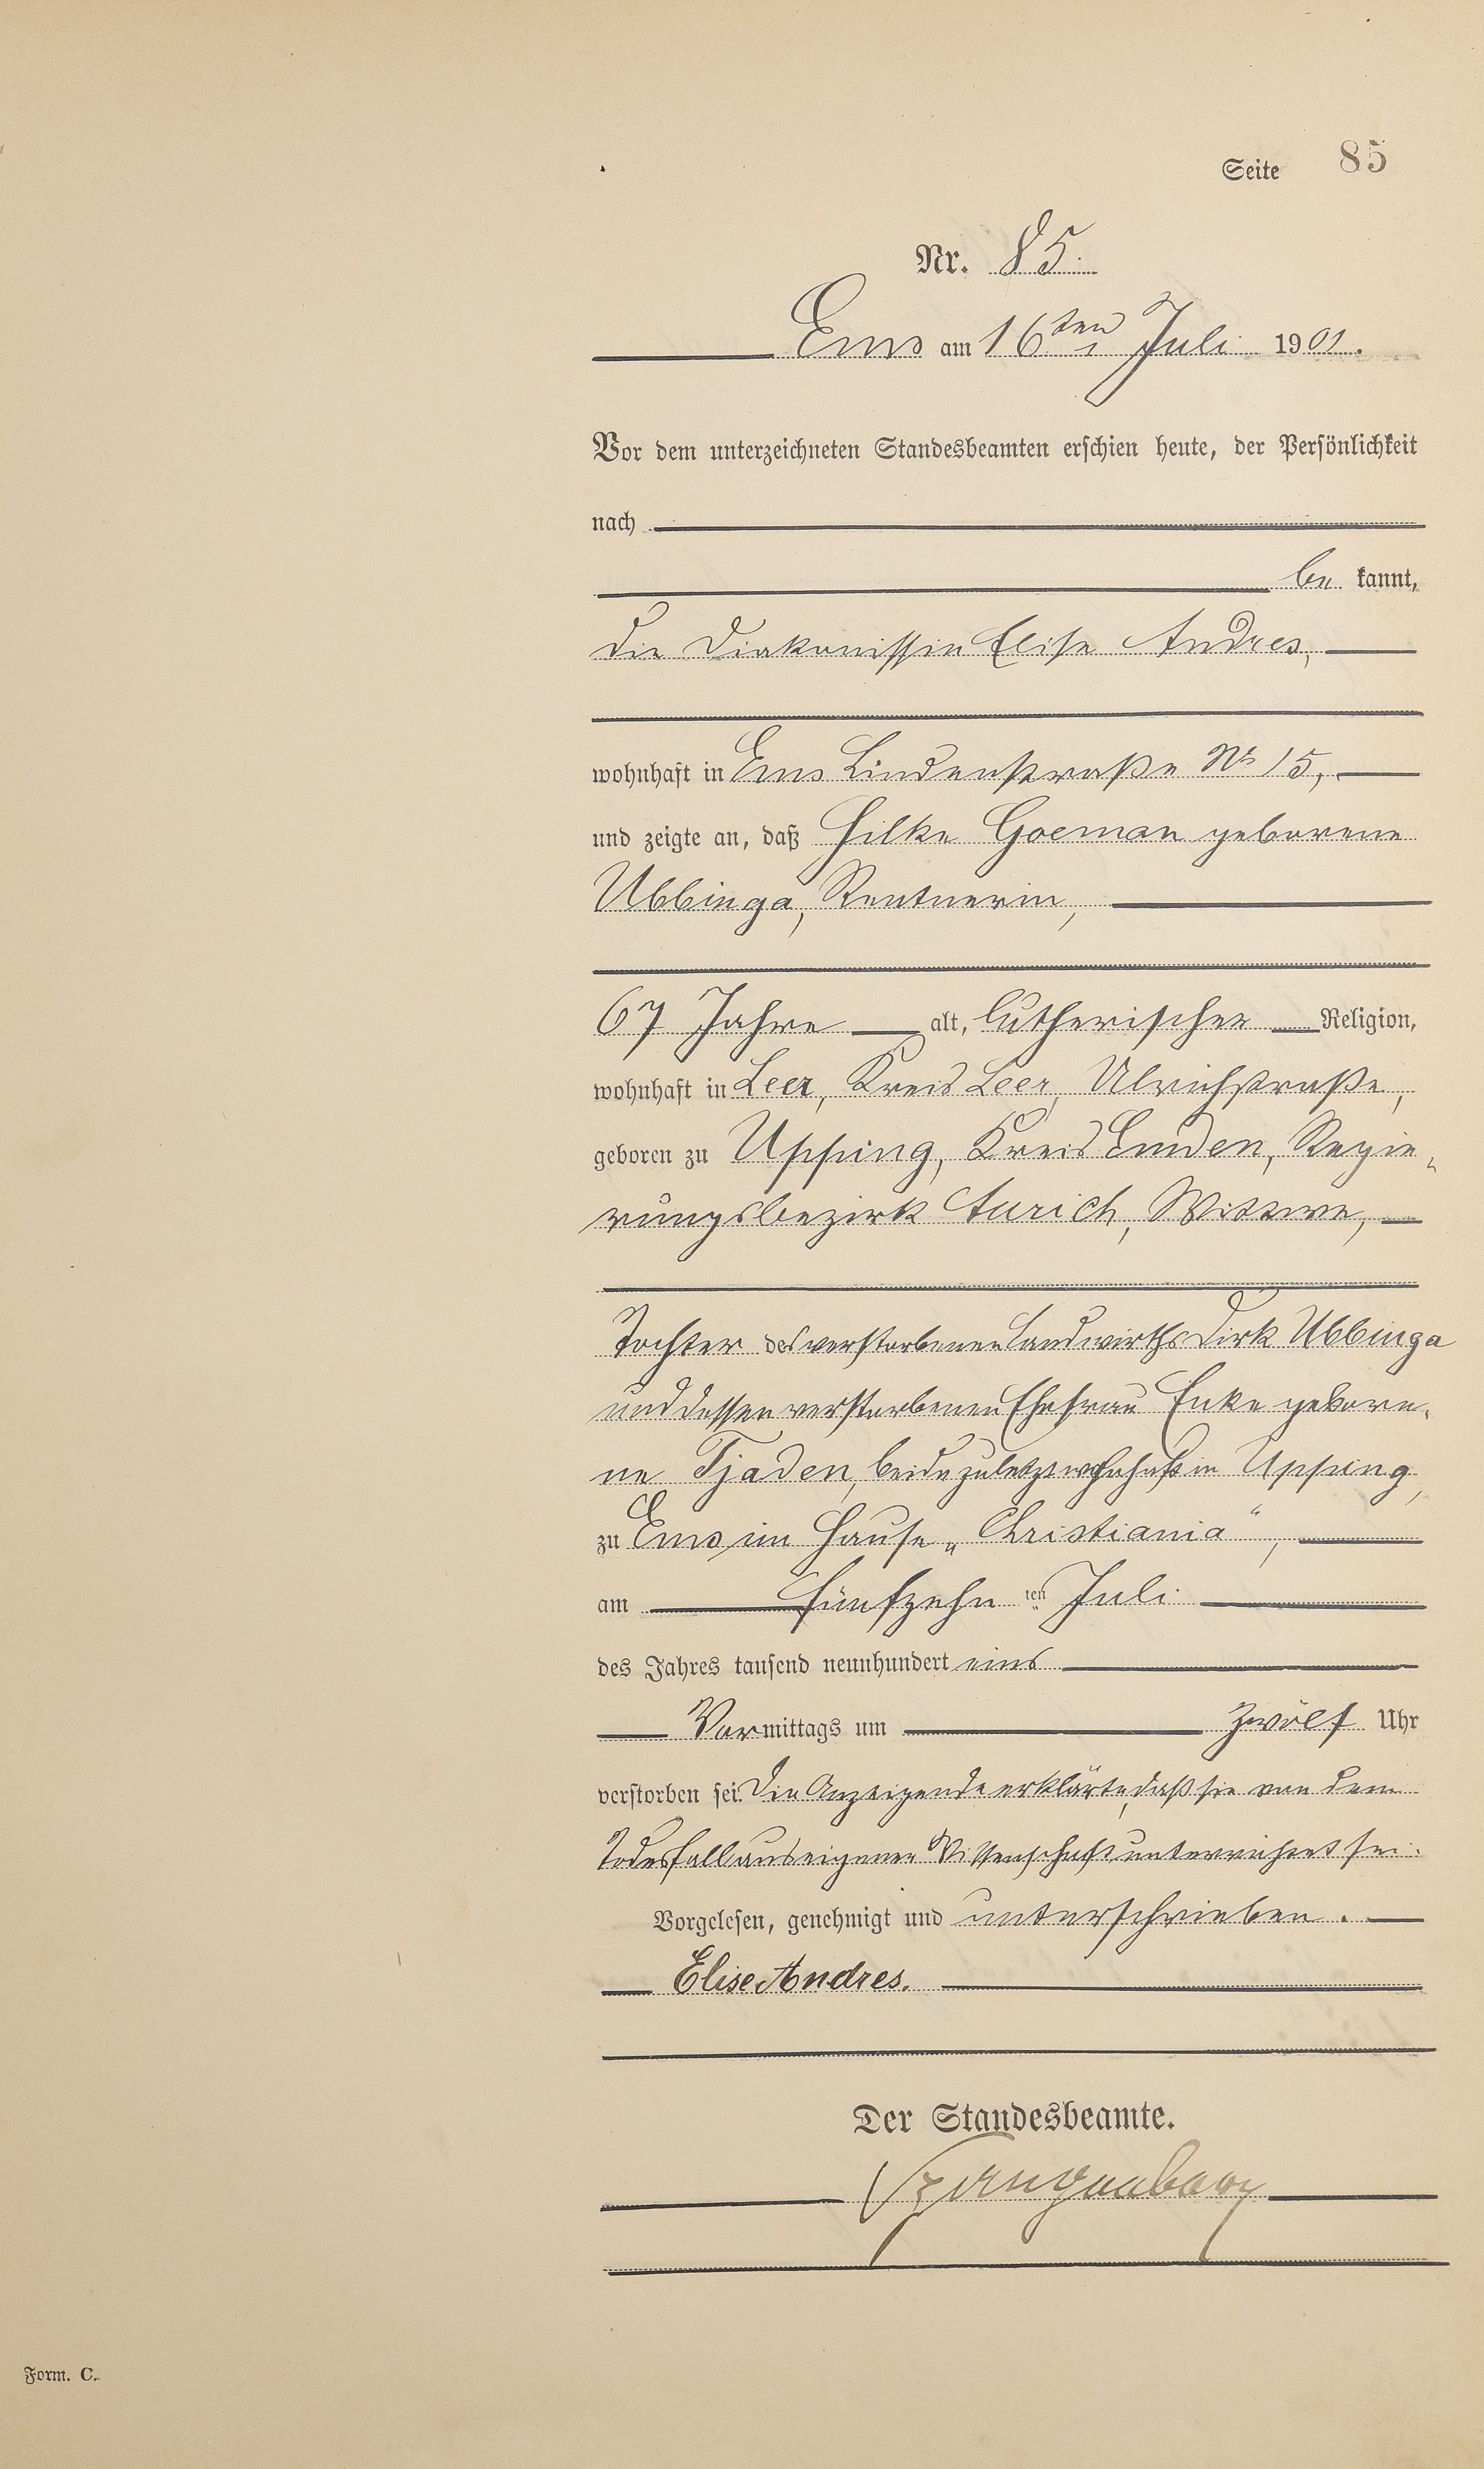 Seite 85
Nr. 85.
Ems am 16ten Juli 1901.
Vor dem unterzeichneten Standesbeamten erschien heute, der Persönlichkeit
nach
be kannt,
die Diakonissin Elise Andres,
wohnhaft in Ems Lindenstraße Nr 15,
und zeigte an, daß Hilke Goeman geborene
Ubbinga, Rentnerin,
67 Jahre alt, lutherischer Religion,
wohnhaft in Leer, Kreis Leer, Ulrichstraße,
geboren zu Upping, Kreis Emden, Regie-
rungsbezirk Aurich, Wittwe,
Tochter des verstorbenen Landwirths Dirk Ubbinga
und dessen verstorbenen Ehefrau Enke gebore-
ne Tjaden, beide zuletzt wohnhaft in Upping,
zu Ems im Hause „Christiania“,
am fünfzehn ten Juli
des Jahres tausend neunhundert eins
Vormittags um zwölf Uhr
verstorben sei. Die Anzeigende erklärte, daß sie von dem
Todesfall aus eigener Wissenschaft unterrichtet sei.
Vorgelesen, genehmigt und unterschrieben.
Elise Andres.
Der Standesbeamte.
Form. C.